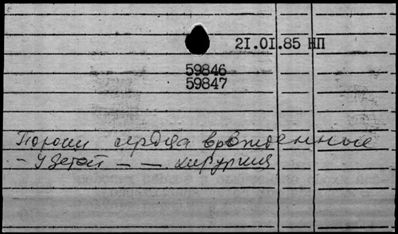 21.01.85 НП
59846
59847
Пороки сердца врожденные
- У детей - - хирургия